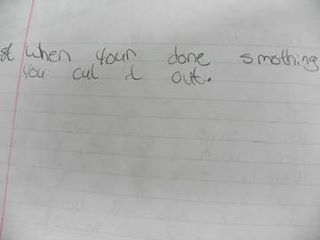 st when your done smothing
you cut it out.